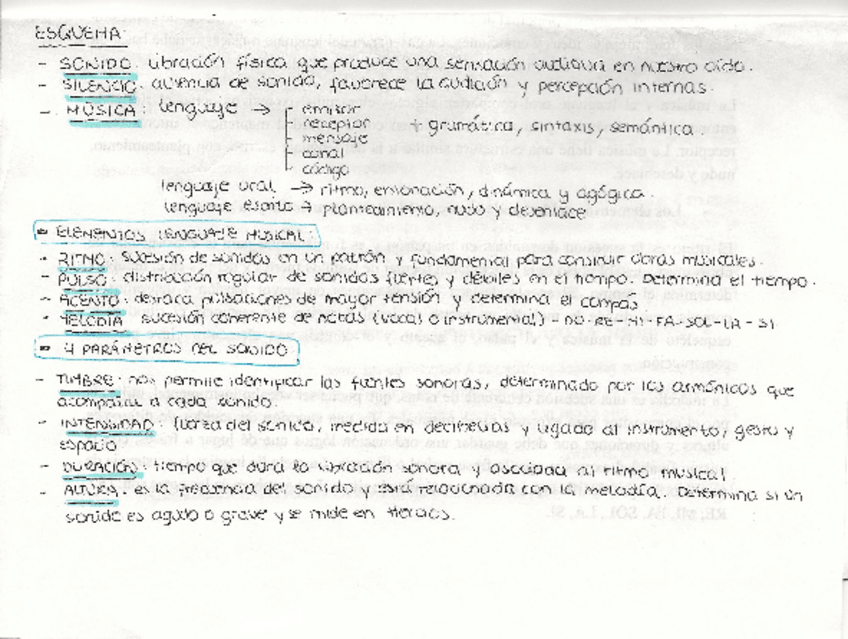 ESQUEMA:
- SONIDO: vibración física que produce una sensación auditiva en nuestro oído.
- SILENCIO: ausencia de sonido, favorece la audición y percepción internas.
- MÚSICA: lenguaje → emisor
receptor + gramática, sintaxis, semántica.
mensaje
canal
código
lenguaje oral → ritmo, entonación, dinámica y agógica.
lenguaje escrito → planteamiento, nudo y desenlace
ELEMENTOS LENGUAJE MUSICAL:
- RITMO: sucesión de sonidos en un patrón y fundamental para construir obras musicales.
- PULSO: distribución regular de sonidos fuertes y débiles en el tiempo. Determina el tiempo.
- ACENTO: destaca pulsaciones de mayor tensión y determina el compás.
- MELODÍA: sucesión coherente de notas (vocal o instrumental) - DO-RE-MI-FA-SOL-LA-SI
4 PARÁMETROS DEL SONIDO
- TIMBRE: nos permite identificar las fuentes sonoras, determinado por los armónicos que
acompañan a cada sonido.
- INTENSIDAD: fuerza del sonido, medida en decibelios y ligado al instrumento, gesto y
espacio
- DURACIÓN: tiempo que dura la vibración sonora y asociada al ritmo musical
- ALTURA: es la frecuencia del sonido y está relacionada con la melodía. Determina si un
sonido es agudo o grave y se mide en
RE, MI, FA, SOL, LA, SI.